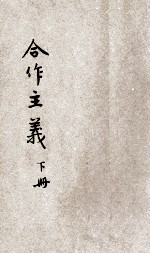 合作主義 下册